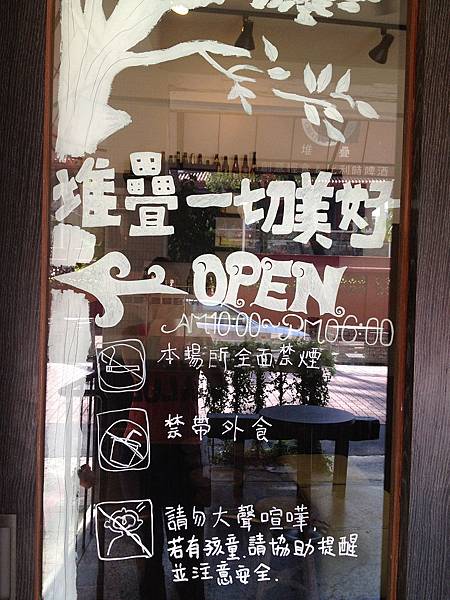 堆疊
利時啤酒
堆疊一切美好
OPEN
AM10:00~PM06:00
本場所全面禁煙
禁帶外食
請勿大聲喧嘩,
若有孩童.請協助提醒
並注意安全.